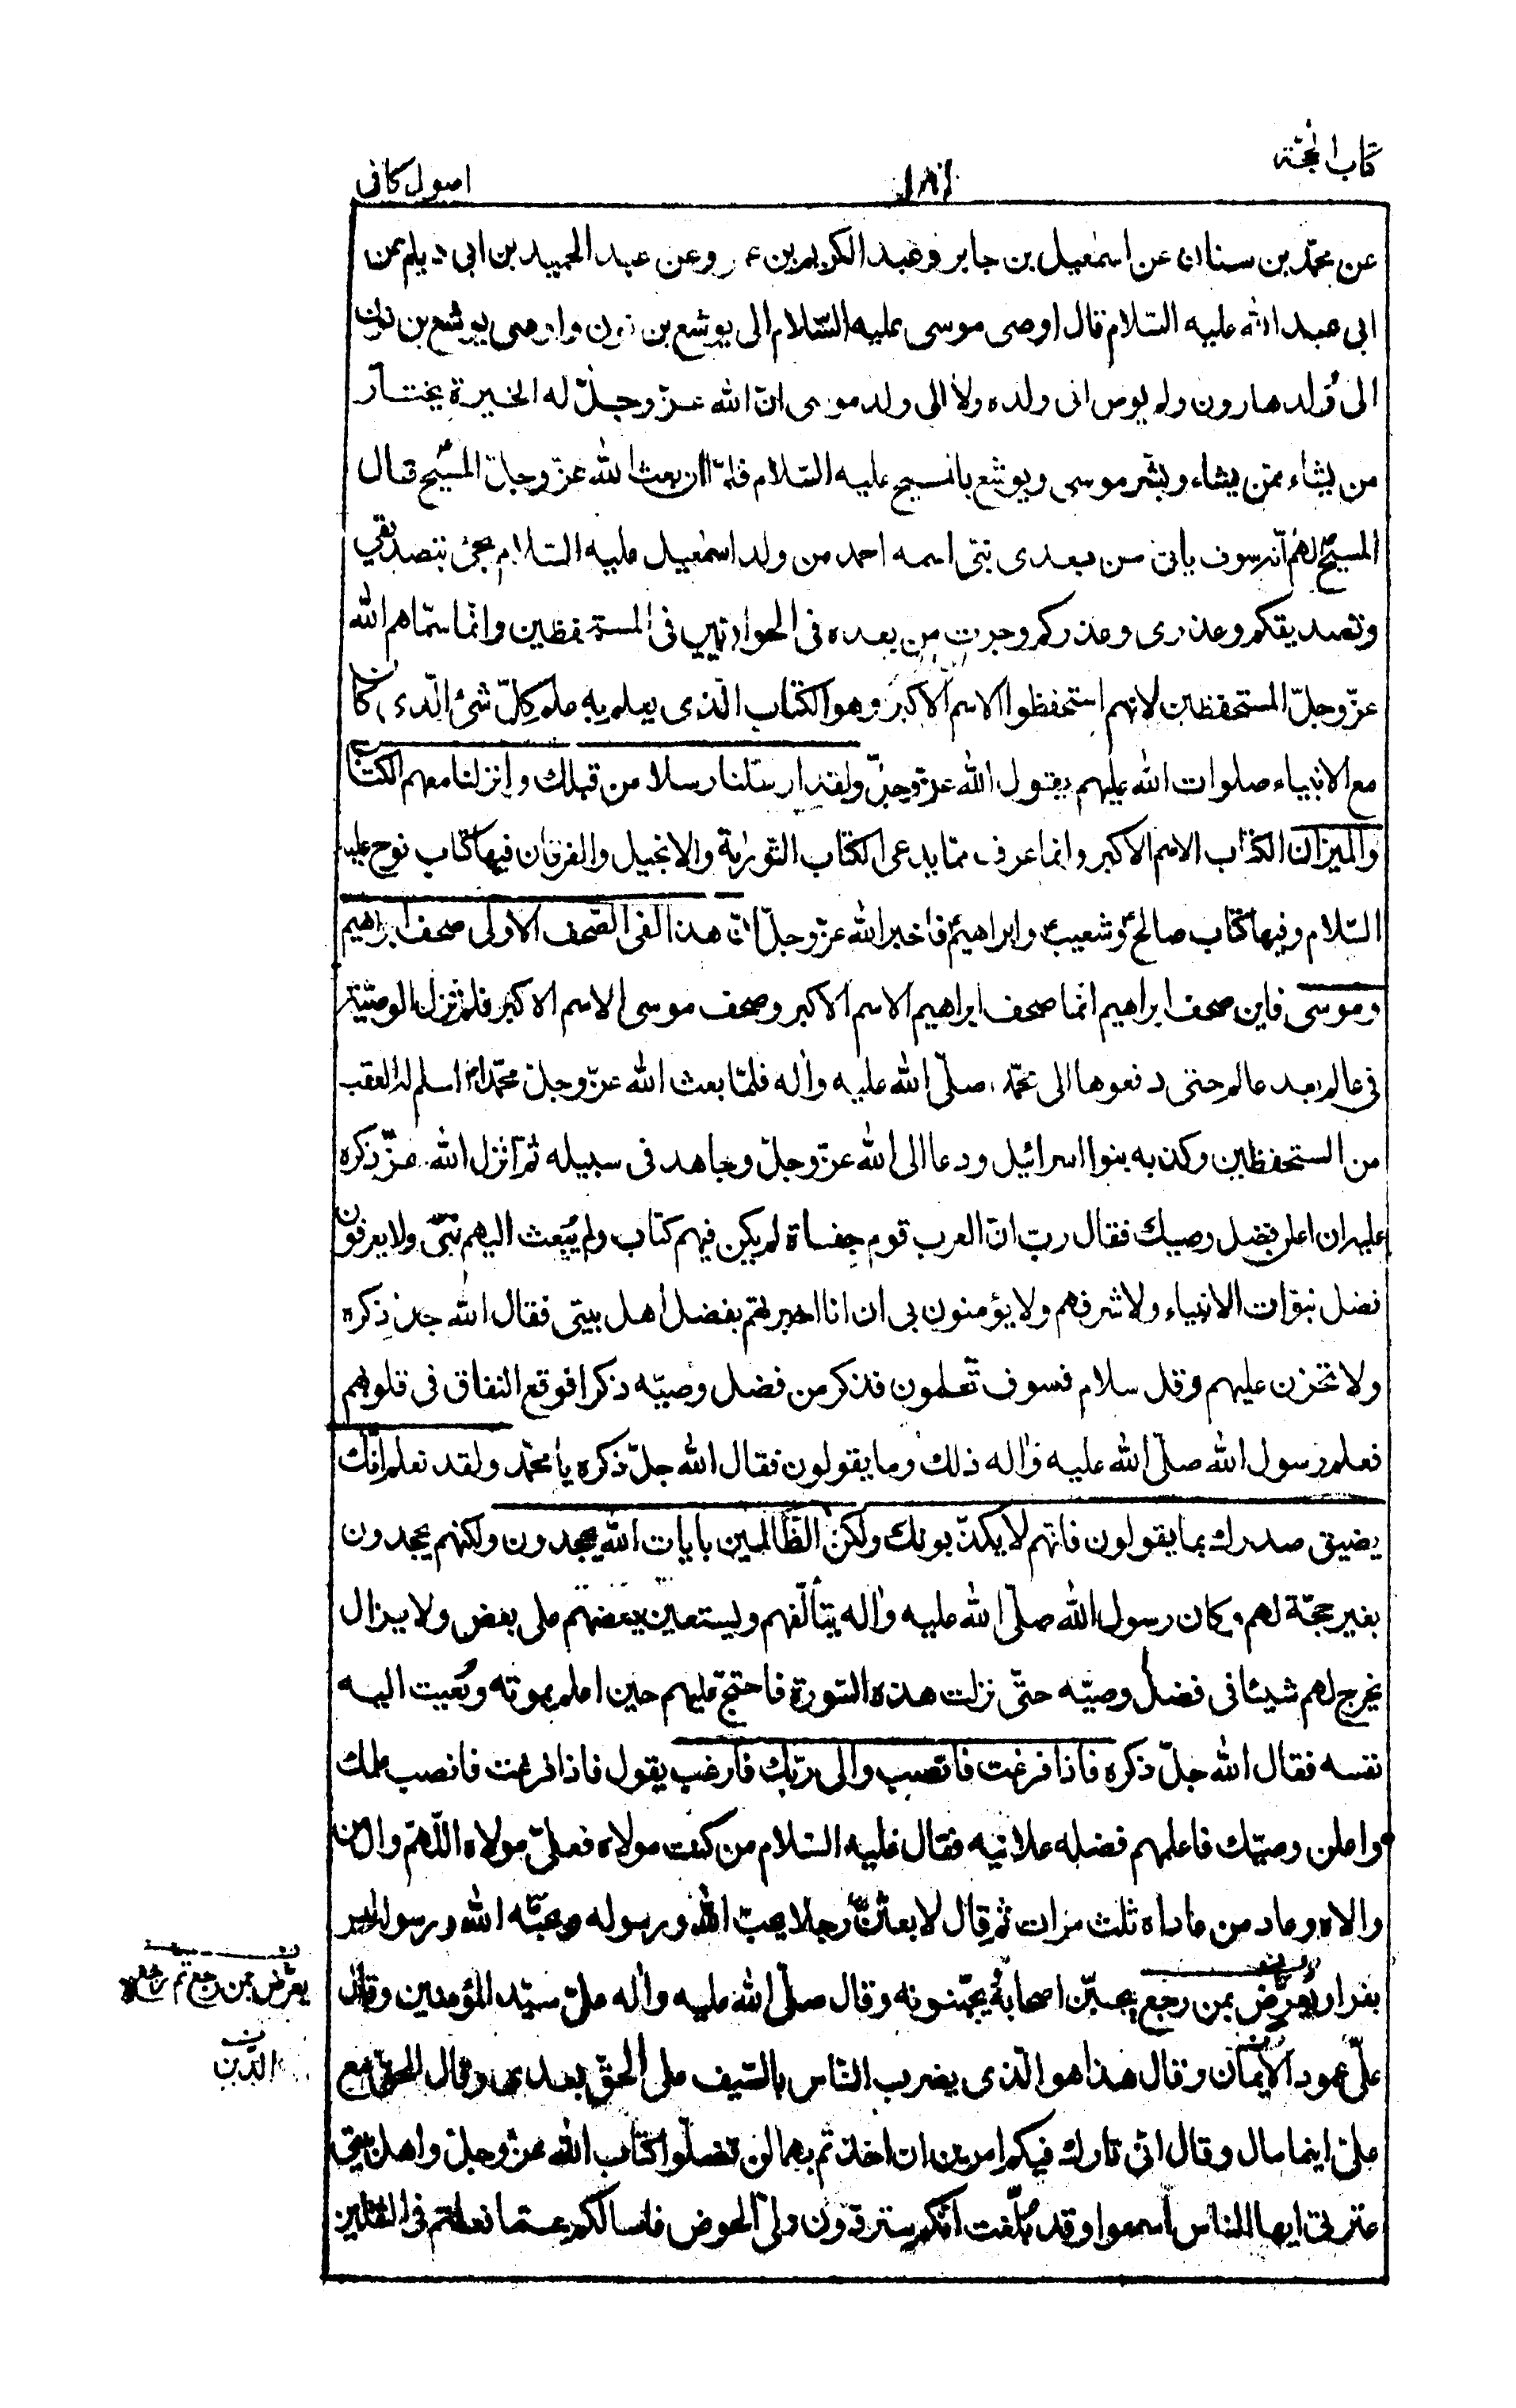 كتاب الحجّة
١٨١
اصول كافى
عن محمّد بن سنان عن اسمٰعيل بن جابر وعبد الكريم بن عمرو عن عبد الحميد بن ابى ديلم عن
ابى عبد الله عليه السّلام قال اوصى موسى عليه السّلام الى يوشع بن نون واوصى يوشع بن نون
الى وُلد هارون ولم يوص الى ولده ولا الى ولد موسى انّ الله عزّ وجلّ له الخيرة يختار
من يشاء ممّن يشاء وبشّر موسى ويوشع بالمسيح عليه السّلام فلمّا ان بعث الله عزّ وجلّ المسيح قال
المسيح لهم انّه سوف يأتى من بعدى نبىّ اسمه احمد من ولد اسمٰعيل عليه السّلام يجئ بتصديقى
وتصديقكم وعذرى وعذركم وجرت من بعده فى الحواريّين فى المستحفظين وانّما سمّاهم الله
عزّ وجلّ المستحفظين لانهم استحفظوا الاسم الاكبر وهو الكتاب الّذى يعلم به علم كلّ شئ الّذى كان
مع الانبياء صلوات الله عليهم يقول الله عزّ وجلّ ولقد ارسلنا رسلا من قبلك وانزلنا معهم الكتاب
والميزان الكتاب الاسم الاكبر وانما عرف ممّا يدعى الكتاب التّوراية والانجيل والفرقان فيها كتاب نوح عليه
السّلام وفيها كتاب صالح وشعيب وابراهيم فاخبر الله عزّ وجلّ انّ هذا لفى الصّحف الاولى صحف ابراهيم
وموسى فاين صحف ابراهيم انّما صحف ابراهيم الاسم الاكبر وصحف موسى الاسم الاكبر فلم تزل الوصيّة
فى عالم بعد عالم حتى دفعوها الى محمّد صلّى الله عليه واٰله فلمّا بعث الله عزّ وجلّ محمّدا اسلم له العقب
من المستحفظين وكذبه بنوا اسرائيل ودعا الى الله عزّ وجلّ وجاهد فى سبيله ثمّ انزل الله عزّ ذكره
عليه ان اعلن فضل وصيك فقال ربّ انّ العرب قوم جفاة لم يكن فيهم كتاب ولم يُبعث اليهم نبىّ ولا يعرفون
فضل نبوّات الانبياء ولا شرفهم ولا يؤمنون بى ان انا اخبرتهم بفضل اهل بيتى فقال الله جلّ ذكره
ولا تحزن عليهم وقل سلام فسوف تعلمون فذكر من فضل وصيّه ذكرا فوقع النفاق فى قلوبهم
فعلم رسول الله صلّى الله عليه واٰله ذلك وما يقولون فقال الله جلّ ذكره يا محمّد ولقد نعلم انّك
يضيق صدرك بما يقولون فانّهم لا يكذّبونك ولكنّ الظّالمين بايات الله يجحدون ولكنهم يجحدون
بغير حجّة لهم وكان رسول الله صلّى الله عليه واٰله يتألّفهم ويستعين ببعضهم على بعض ولا يزال
يخرج لهم شيئا فى فضل وصيّه حتّى نزلت هذه السّورة فاحتجّ عليهم حين اعلم بموته ونُعيت اليه
نفسه فقال الله جلّ ذكره فاذا فرغت فانصب والى ربّك فارغب يقول فاذا فرغت فانصب علمك
واعلن وصيّك فاعلمهم فضله علانيه فقال عليه السّلام من كنت مولاه فعلىّ مولاه اللّهمّ وال من
والاه وعاد من عاداه ثلث مرّات ثم قال لابعثنّ رجلا يحبّ الله ورسوله ويحبّه الله ورسوله ليس
بفرار يُعرّض بمن رجع يجبّن اصحابه ويجبّنونه وقال صلّى الله عليه واٰله علىّ سيّد المؤمنين وقال
علىّ عمود الايمان وقال هذا هو الّذى يضرب النّاس بالسّيف على الحقّ بعدى وقال الحقّ مع
علىّ اينما مال وقال انّى تارك فيكم امرين ان اخذتم بهما لن تضلّوا كتاب الله عزّ وجلّ واهل بيتى
عترتى ايها الناس اسمعوا وقد بلّغت انّكم ستردّون علىّ الحوض فاسالكم عمّا فعلتم فى الثقلين
يعرّض بمن رجع
الدّين